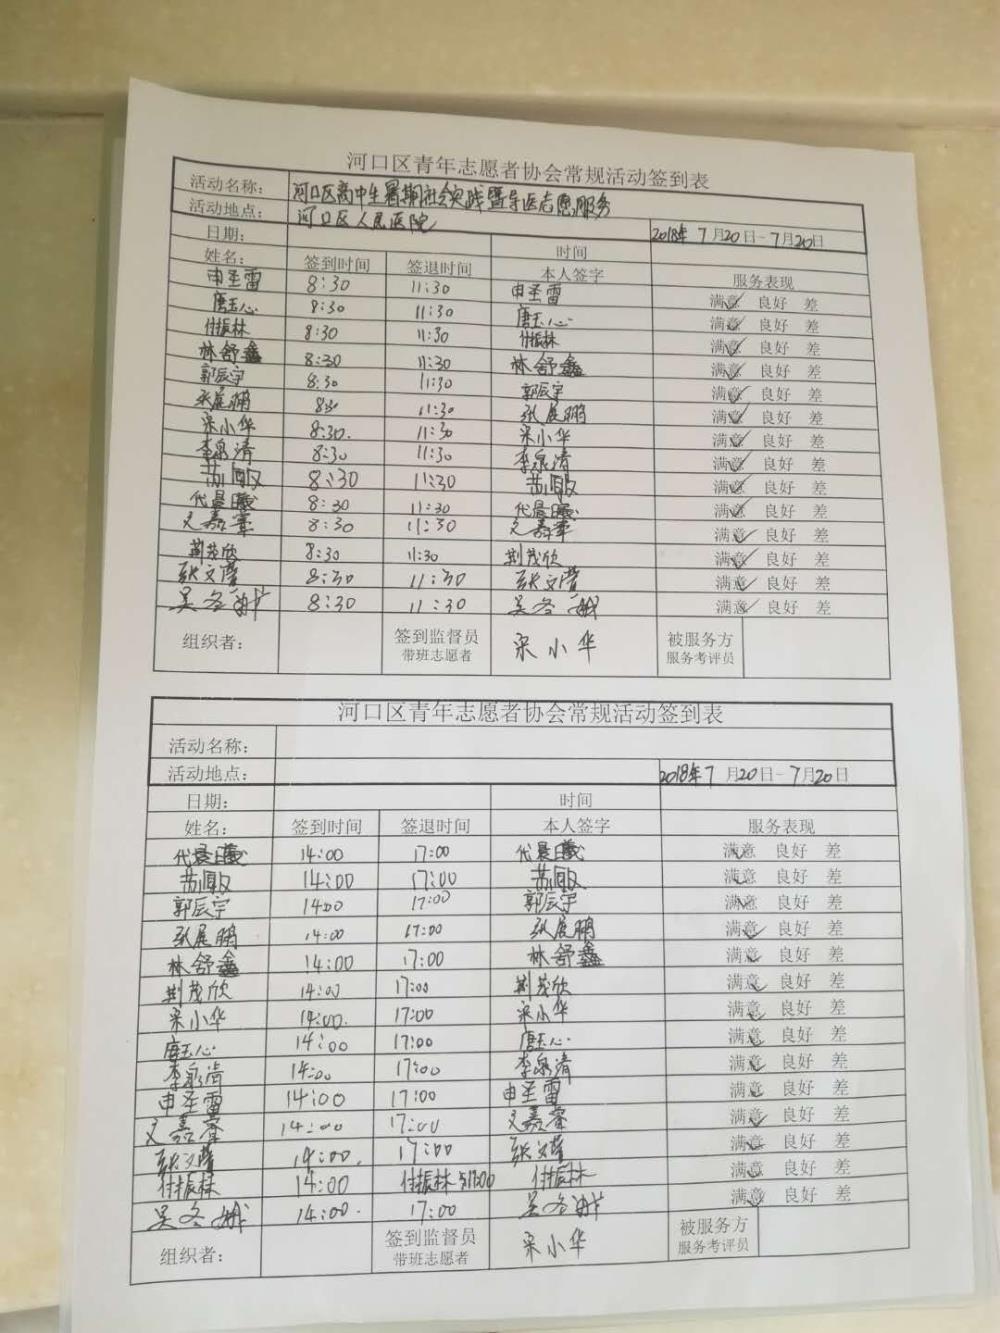 河口区青年志愿者协会常规活动签到表
活动名称： 河口区高中生暑期社会实践暨导医志愿服务
活动地点： 河口区人民医院 2018年7月20日-7月20日
日期： 时间
姓名： 签到时间 签退时间 本人签字 服务表现
申圣雷 8:30 11:30 申圣雷 满意 良好 差
唐玉心 8:30 11:30 唐玉心 满意 良好 差
付振林 8:30 11:30 付振林 满意 良好 差
林舒鑫 8:30 11:30 林舒鑫 满意 良好 差
郭辰宇 8:30 11:30 郭辰宇 满意 良好 差
张展鹏 8:30 11:30 张展鹏 满意 良好 差
宋小华 8:30. 11:30 宋小华 满意 良好 差
李泉清 8:30 11:30 李泉清 满意 良好 差
8:30 11:30 满意 良好 差
代晨曦 8:30 11:30 代晨曦 满意 良好 差
文嘉 8:30 11:30 文嘉 满意 良好 差
荆茂欣 8:30 11:30 荆茂欣 满意 良好 差
张文 8:30 11:30 张文 满意 良好 差
吴冬 8:30 11:30 吴冬 满意 良好 差
组织者： 签到监督员 宋小华 被服务方
带班志愿者 服务考评员
河口区青年志愿者协会常规活动签到表
活动名称：
活动地点： 2018年7月20日-7月20日
日期： 时间
姓名： 签到时间 签退时间 本人签字 服务表现
代晨曦 14:00 17:00 代晨曦 满意 良好 差
14:00 17:00 满意 良好 差
郭辰宇 14:00 17:00 郭辰宇 满意 良好 差
张展鹏 14:00 17:00 张展鹏 满意 良好 差
林舒鑫 14:00 17:00 林舒鑫 满意 良好 差
荆茂欣 14:00 17:00 荆茂欣 满意 良好 差
宋小华 14:00. 17:00 宋小华 满意 良好 差
唐玉心 14:00 17:00 唐玉心 满意 良好 差
李泉清 14:00 17:00 李泉清 满意 良好 差
申圣雷 14:00 17:00 申圣雷 满意 良好 差
文嘉 14:00 17:00 文嘉 满意 良好 差
张文 14:00. 17:00 张文 满意 良好 差
付振林 14:00 付振林 17:00 付振林 满意 良好 差
吴冬 14:00. 17:00 吴冬 满意 良好 差
组织者： 签到监督员 宋小华 被服务方
带班志愿者 服务考评员